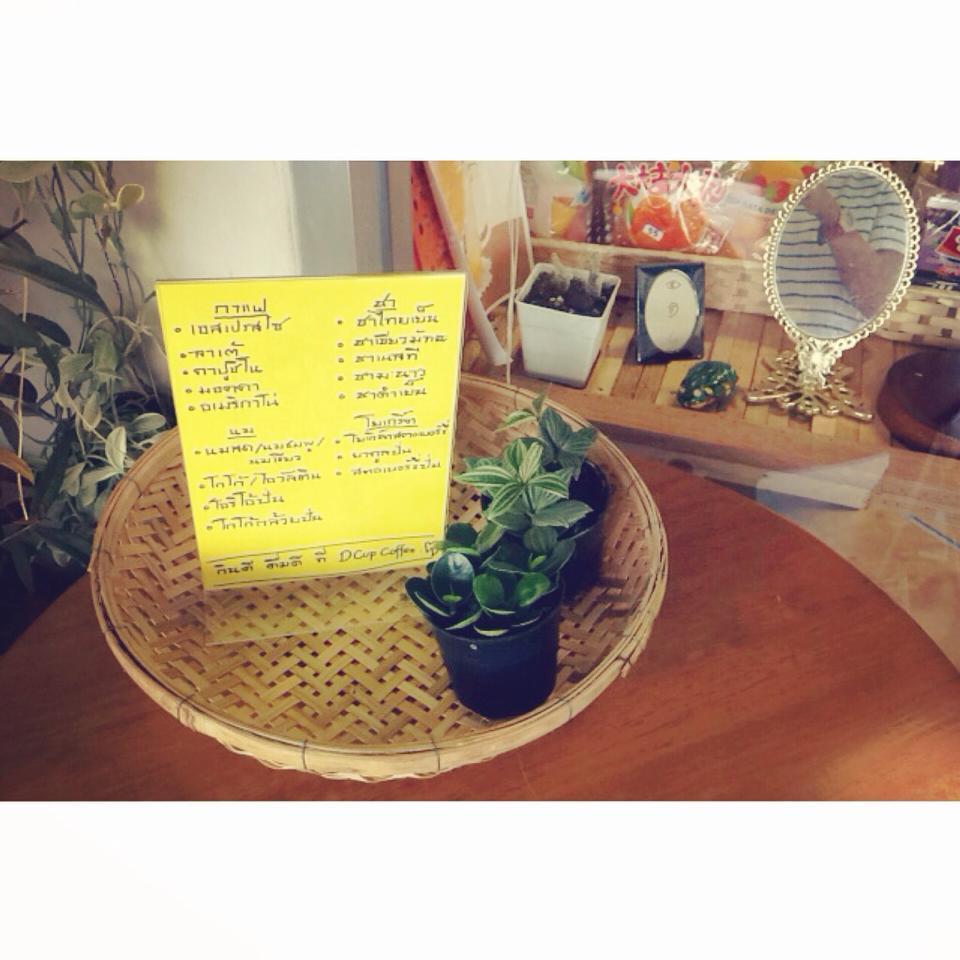 กาแฟ
• เอสเปรสโซ
• ลาเต้
• คาปูชิโน
• มอคคา
• อเมริกาโน่
นม
• นมสด/นมชมพู/
นมเขียว
• โกโก้/โอวัลติน
• โอริโอ้ปั่น
• โกโก้กล้วยปั่น
ชา
• ชาไทยเย็น
• ชาเขียวมัทฉะ
• ชาเนสที
• ชามะนาว
• ชาดำเย็น
โยเกิร์ต
• โยเกิร์ตสตรอเบอร์รี่
• ยากูลปั่น
• สตอเบอร์รี่ปั่น
กินดี ดื่มดี ที่ D Cup Coffee
55